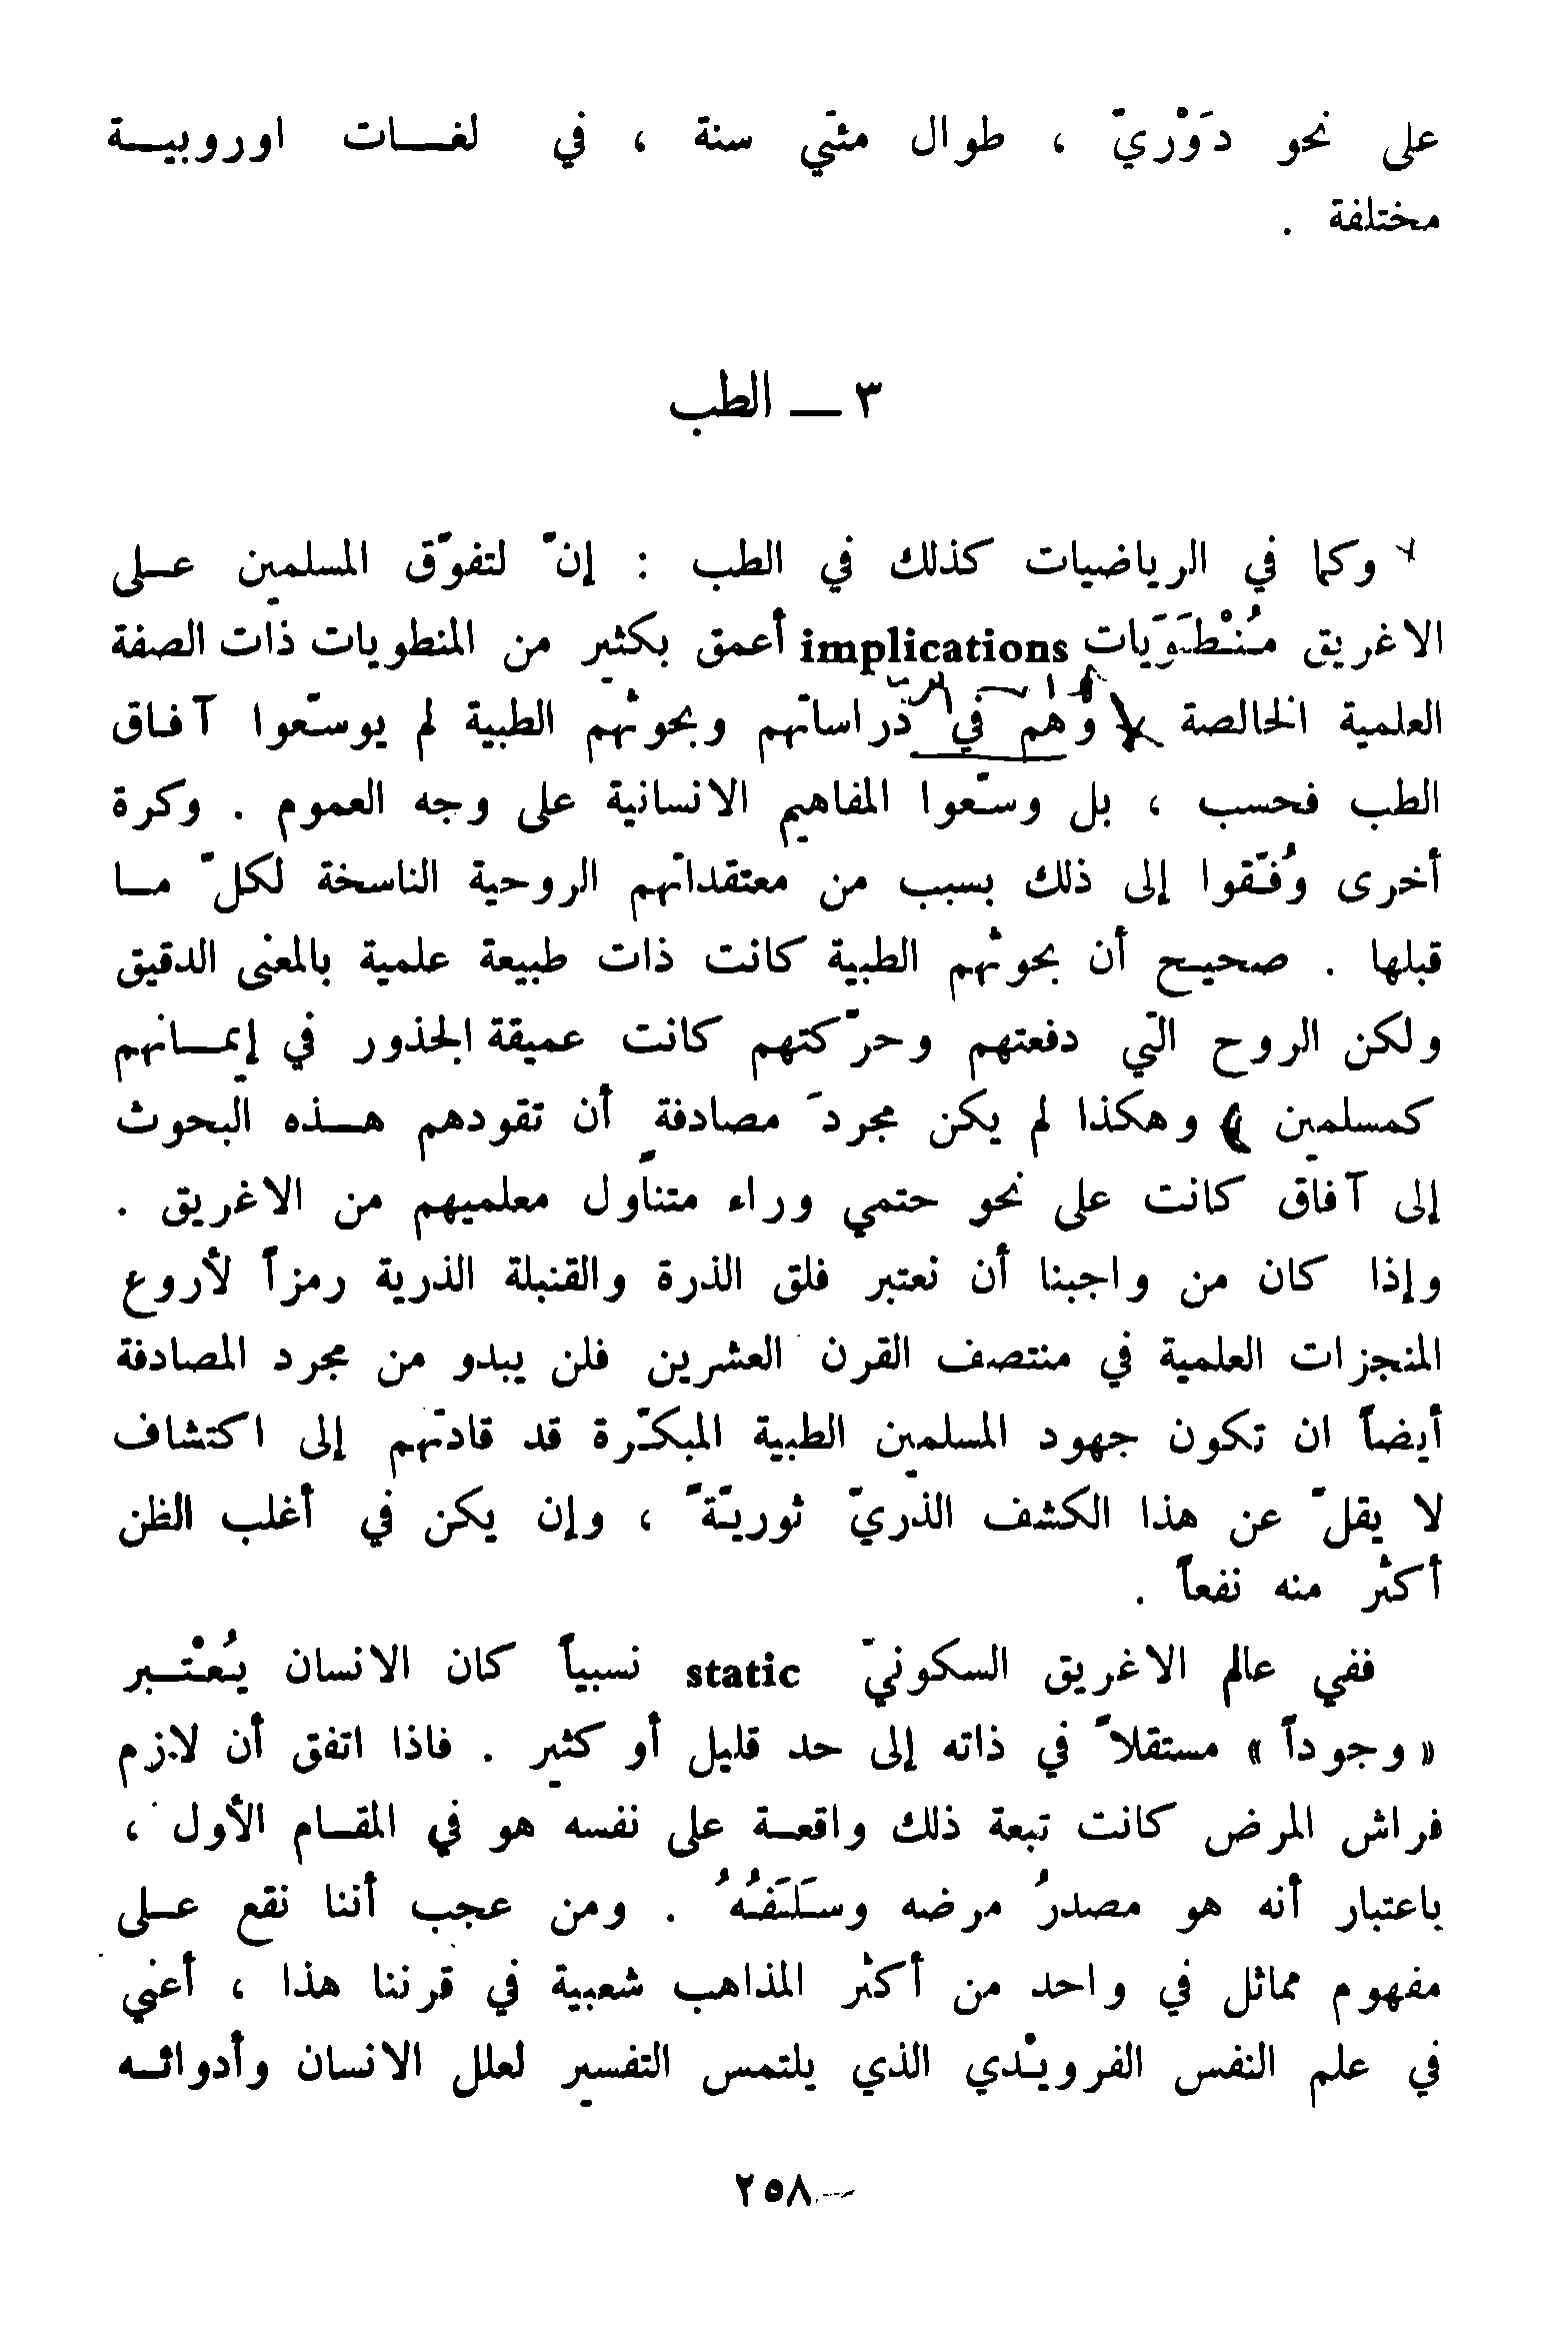 على نحو دَوْريّ ، طوال مئتي سنة ، في لغـــات اوروبيـــة
مختلفة .
٣ ــ الطب
وكما في الرياضيات كذلك في الطب : إنّ لتفوّق المسلمين عـلى
الاغريق مُنْطَوَيات implications أعمق بكثير من المنطويات ذات الصفة
العلمية الخالصة وهم في دراساتهم وبحوثهم الطبية لم يوسّعوا آفـاق
الطب فحسب ، بل وسّعوا المفاهيم الانسانية على وجه العموم . وكرة
أخرى وُفّقوا إلى ذلك بسبب من معتقداتهم الروحية الناسخة لكلّ مـا
قبلها . صحيح أن بحوثهم الطبية كانت ذات طبيعة علمية بالمعنى الدقيق
ولكن الروح التي دفعتهم وحرّكتهم كانت عميقة الجذور في إيمـانهم
كمسلمين وهكذا لم يكن مجردَ مصادفةٍ أن تقودهم هـذه البحوث
إلى آفاق كانت على نحو حتمي وراء متناول معلميهم من الاغريق .
وإذا كان من واجبنا أن نعتبر فلق الذرة والقنبلة الذرية رمزاً لأروع
المنجزات العلمية في منتصف القرن العشرين فلن يبدو من مجرد المصادفة
أيضاً ان تكون جهود المسلمين الطبية المبكّرة قد قادتهم إلى اكتشاف
لا يقلّ عن هذا الكشف الذريّ ثوريّةً ، وإن يكن في أغلب الظن
أكثر منه نفعاً .
ففي عالم الاغريق السكونيّ static نسبياً كان الانسان يُعْتـبر
« وجوداً » مستقلاً في ذاته إلى حد قليل أو كثير . فاذا اتفق أن لازم
فراش المرض كانت تبعة ذلك واقعـة على نفسه هو في المقـام الأول ،
باعتبار أنه هو مصدرُ مرضه وسَلَفُهُ . ومن عجب أننا نقع عـلى
مفهوم مماثل في واحد من أكثر المذاهب شعبية في قرننا هذا ، أعني
في علم النفس الفرويْدي الذي يلتمس التفسير لعلل الانسان وأدوائـه
٢٥٨